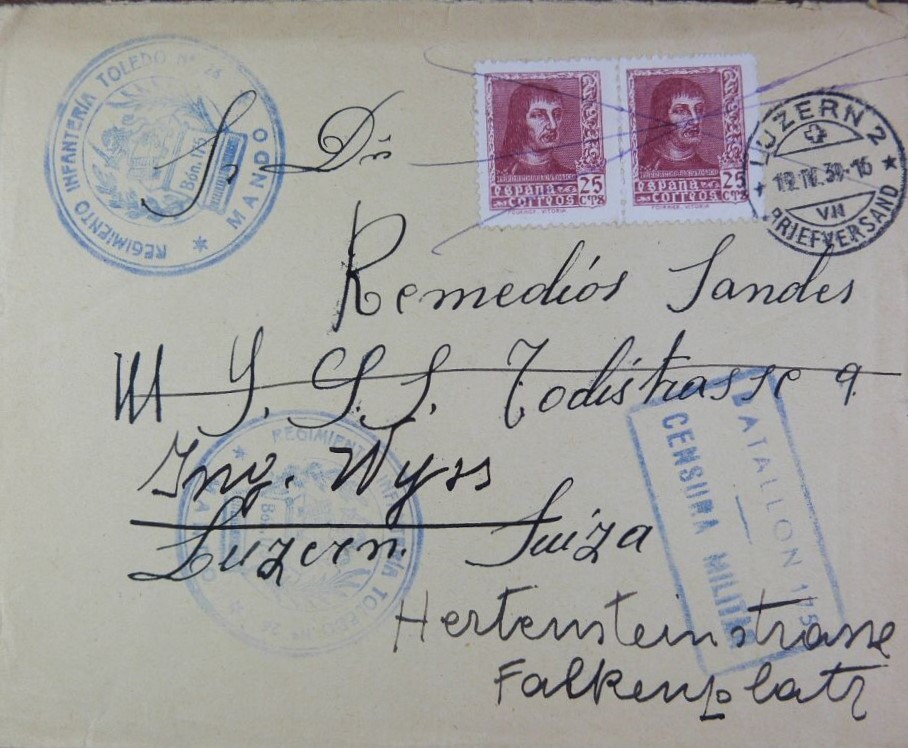 REGIMIENTO INFANTERÍA TOLEDO Nº 26
Bón. 175
MANDO
España
25
Correos CTS
España
25
Correos CTS
LUZERN 2
12.IV.39.-16
VII
BRIEFVERSAND
Remediós Sandes
Todistrasse 9.
Ing. Wyss
Luzern. Suiza
Hertensteinstrasse
Falkenplatz
BATALLON 175
CENSURA MILITAR
REGIMIENTO INFANTERÍA TOLEDO Nº 26